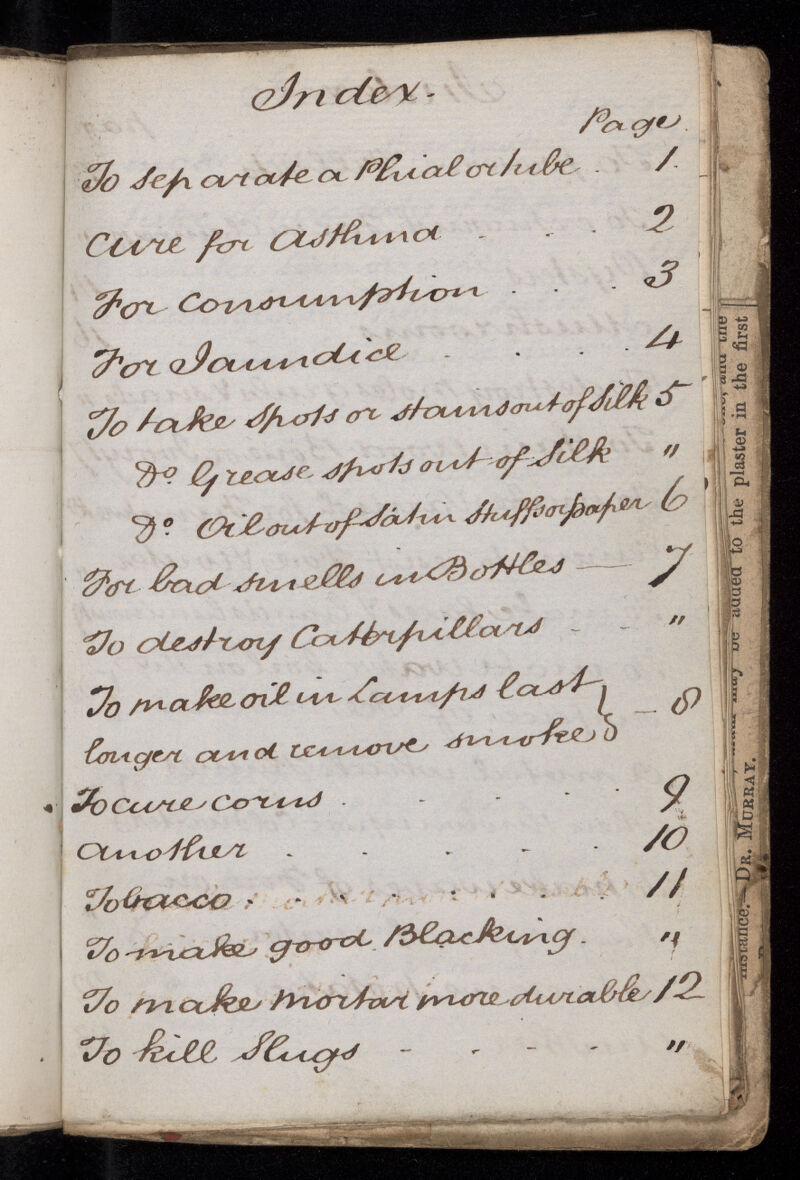 Index.
Page.
To separate a Phial or tube . 1.
Cure for Asthma . . . 2
For Consumption . . . . 3
For Jaundice . . . . . 4
To take Spots or stains out of Silk 5
Do. Grease spots out of Silk "
Do. Oil out of Satin Stuffs or paper 6
For bad smells in Bottles — 7
To destroy Caterpillars - - "
To make oil in Lamps last
longer and remove smoke } — 8
To cure corns . . . . . 9
Another . . . . . . 10
Tobacco . . . . . . 11
To make good Blacking. "
To make Mortar more durable 12
To kill Slugs - - - - "
may be added to the plaster in the first
instance.—DR. MURRAY.